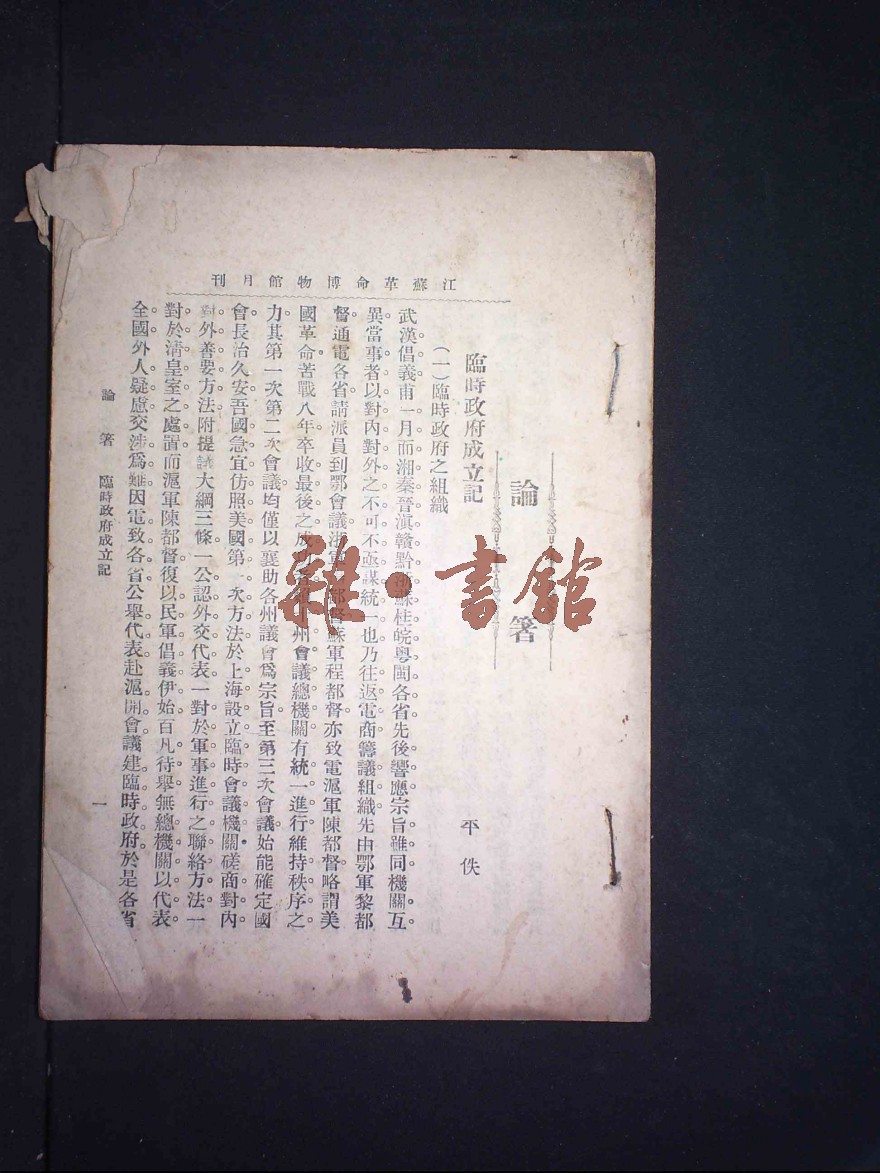 江蘇革命博物館月刊
論箸
臨時政府成立記 平佚
(一)臨時政府之組織
武漢倡義甫一月而湘秦晉滇贛黔浙蘇桂皖粵閩各省先後響應宗旨雖同機關互
異當事者以對內對外之不可不亟謀統一也乃往返電商籌議組織先由鄂軍黎都
督通電各省請派員到鄂會議浙軍都督蘇軍程都督亦致電滬軍陳都督略謂美
國革命苦戰八年卒收最後之成州會議總機關有統一進行維持秩序之
力其第一次第二次會議均僅以襄助各州議會爲宗旨至第三次會議始能確定國
會長治久安吾國急宜仿照美國第一次方法於上海設立臨時會議機關磋商對內
對外善要方法附提議大綱三條一公認外交代表一對於軍事進行之聯絡方法一
對於淸皇室之處置而滬軍陳都督復以民軍倡義伊始百凡待舉無總機關以代表
全國外人疑慮交涉爲難因電致各省公舉代表赴滬開會議建臨時政府於是各省
論箸 臨時政府成立記 一
雜·書館